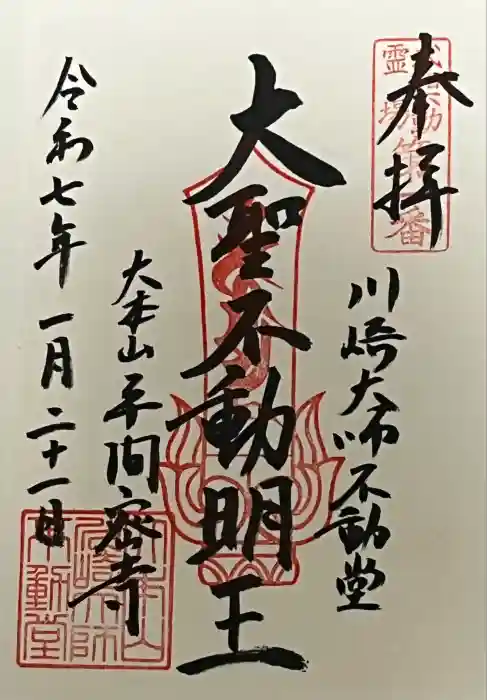 奉拝
霊場第
番
川崎大师不動堂
大聖不動明王
大本山平间密寺
令和七年一月二十一日
不動堂